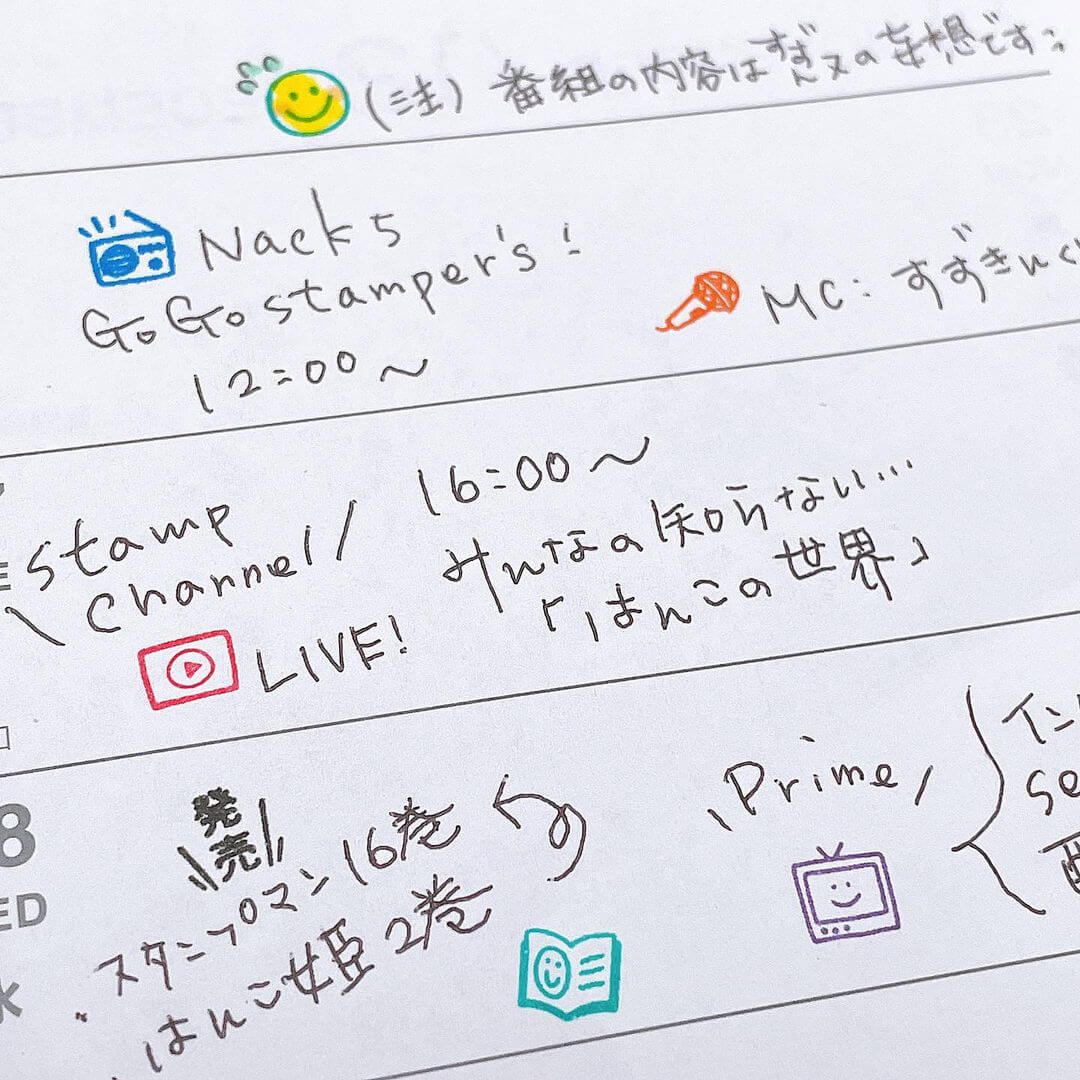 (注)番組の内容はすずんヌの妄想です
Nack5
GoGo stamper's!
12:00〜
MC:すずきんぐ
stamp
\ Channel /
LIVE!
16:00〜
みんなの知らない…
「はんこの世界」
8
ED
発
売
スタンプマン16巻
はんこ姫2巻
\Prime/
イン
se
配